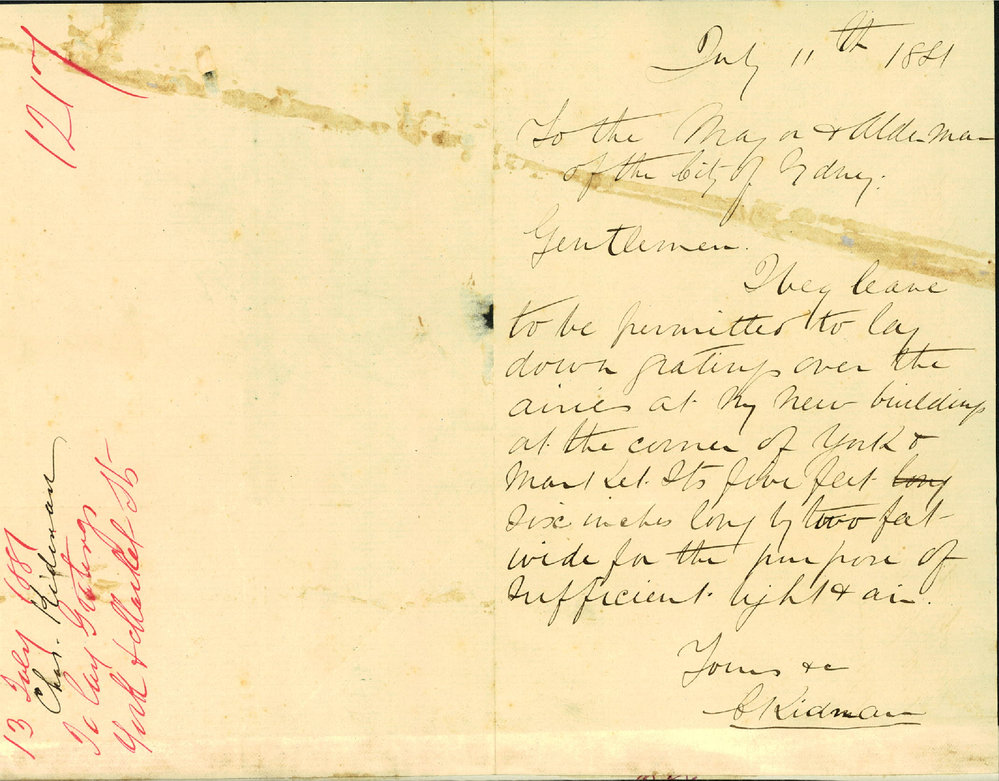 July 11th 1881
To the Mayor & Alderman
of the City of Sydney.
Gentlemen.
I beg leave
to be permitted to lay
down gratings over the
airies at my new buildings
at the corner of York &
Market Sts five feet long
six inches long by two feet
wide for the purpose of
sufficient light & air.
Yours &c
C Kidman
1217
13 July 1881
Chas. Kidman
To lay Gratings
York & Market St